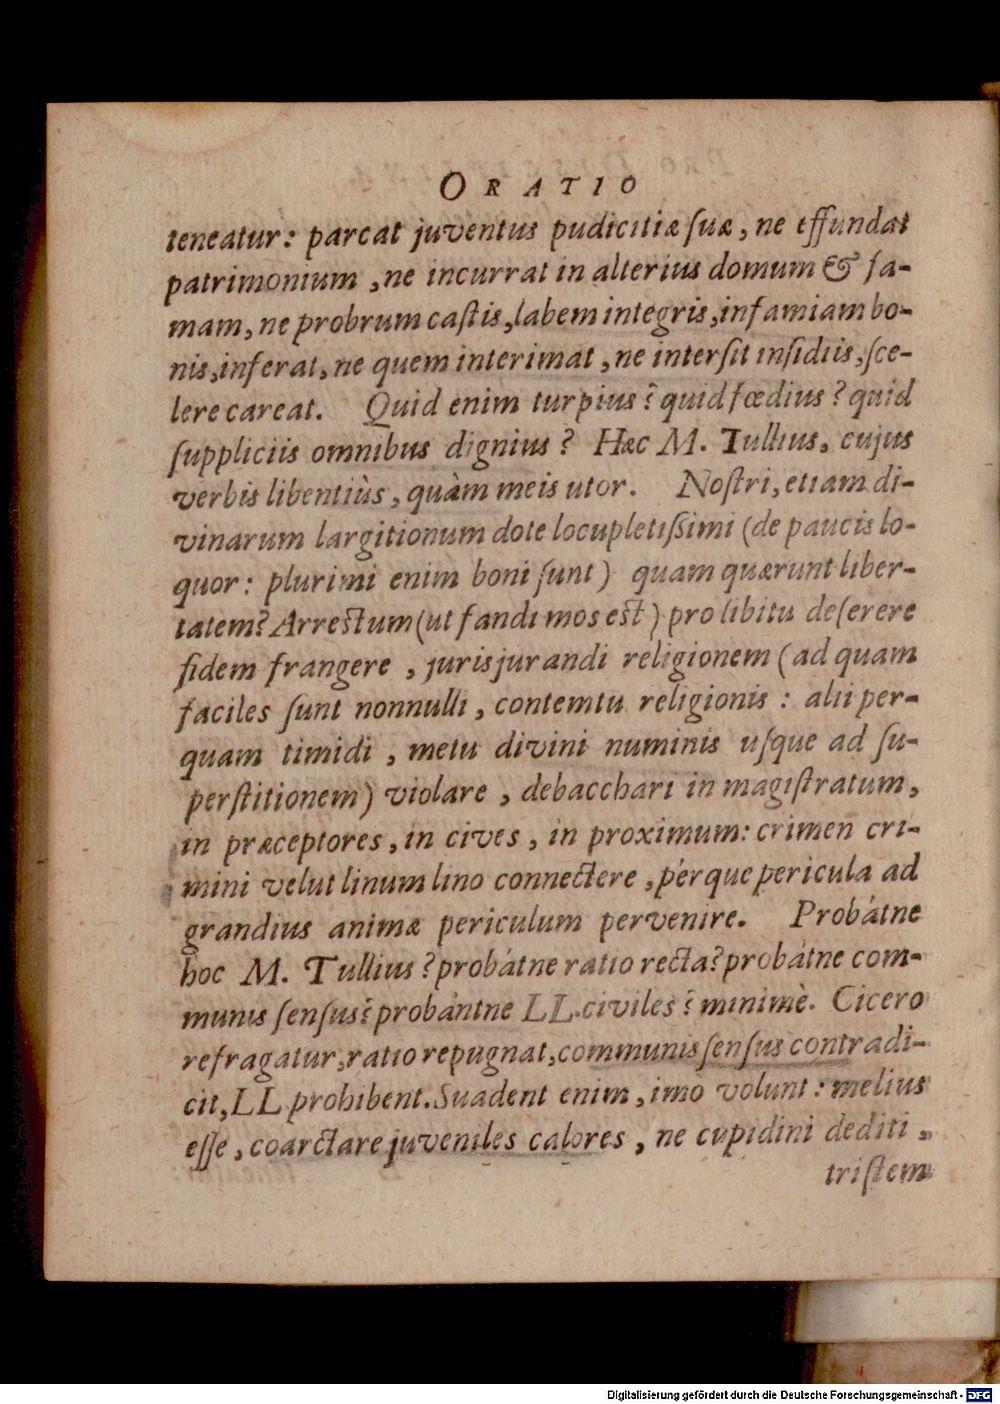 ORATIO
teneatur: parcat juventus pudicitiæ ſuæ, ne effundat
patrimonium, ne incurrat in alterius domum & fa-
mam, ne probrum caſtis, labem integris, infamiam bo-
nis, inferat, ne quem interimat, ne interſit inſidiis, ſce-
lere careat. Quid enim turpius? quid fœdius? quid
ſuppliciis omnibus dignius? Hæc M. Tullius, cujus
verbis libentiùs, quàm meis utor. Noſtri, etiam di-
vinarum largitionum dote locupletiſſimi (de paucis lo-
quor: plurimi enim boni ſunt) quam quærunt liber-
tatem? Arreſtum (ut fandi mos eſt) pro libitu deſerere
fidem frangere, jurisjurandi religionem (ad quam
faciles ſunt nonnulli, contemtu religionis: alii per-
quam timidi, metu divini numinis uſque ad ſu-
perſtitionem) violare, debacchari in magiſtratum,
in præceptores, in cives, in proximum: crimen cri-
mini velut linum lino connectere, pérque pericula ad
grandius animæ periculum pervenire. Probátne
hoc M. Tullius? probátne ratio recta? probátne com-
munis ſenſus? probántne LL. civiles? minimè. Cicero
refragatur, ratio repugnat, communis ſenſus contradi-
cit, LL prohibent. Suadent enim, imo volunt: melius
eſſe, coarctare juveniles calores, ne cupidini dediti,
triſtem
Digitalisierung gefördert durch die Deutsche Forschungsgemeinschaft - DFG